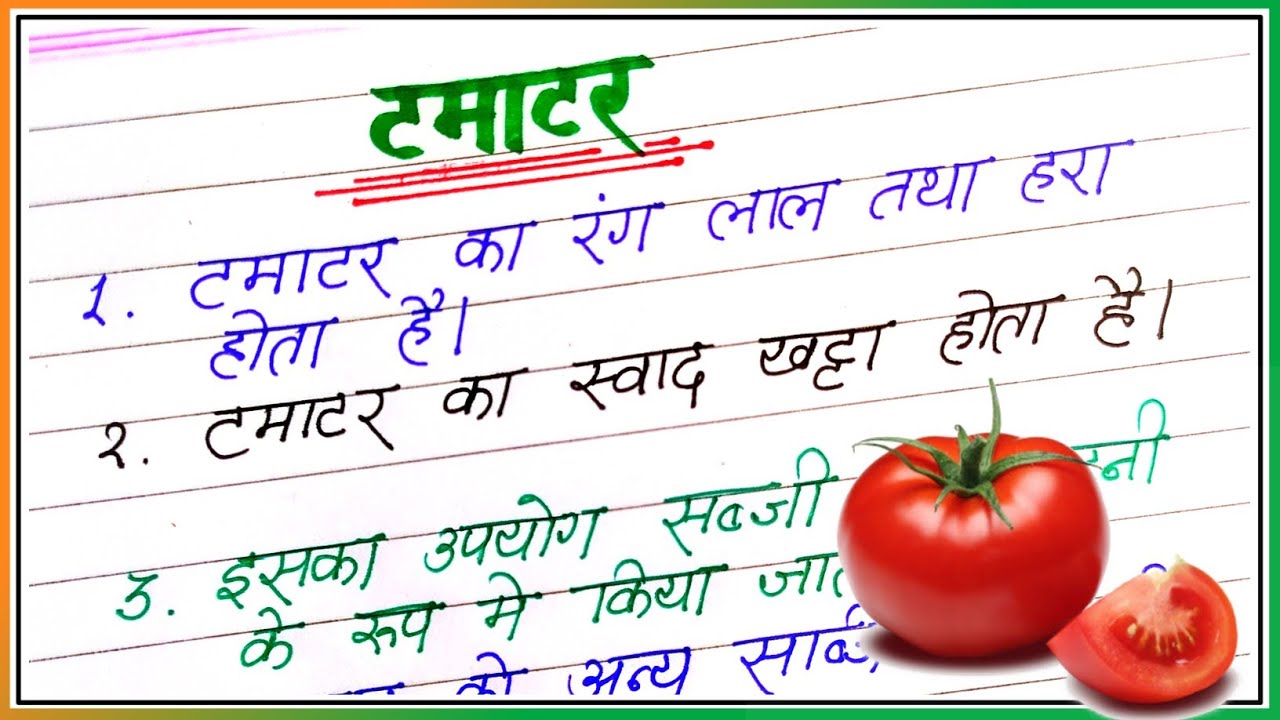 टमाटर
१. टमाटर का रंग लाल तथा हरा
होता है।
२. टमाटर का स्वाद खट्टा होता है।
3. इसका उपयोग सब्जी
के रूप मे किया
को अन्य